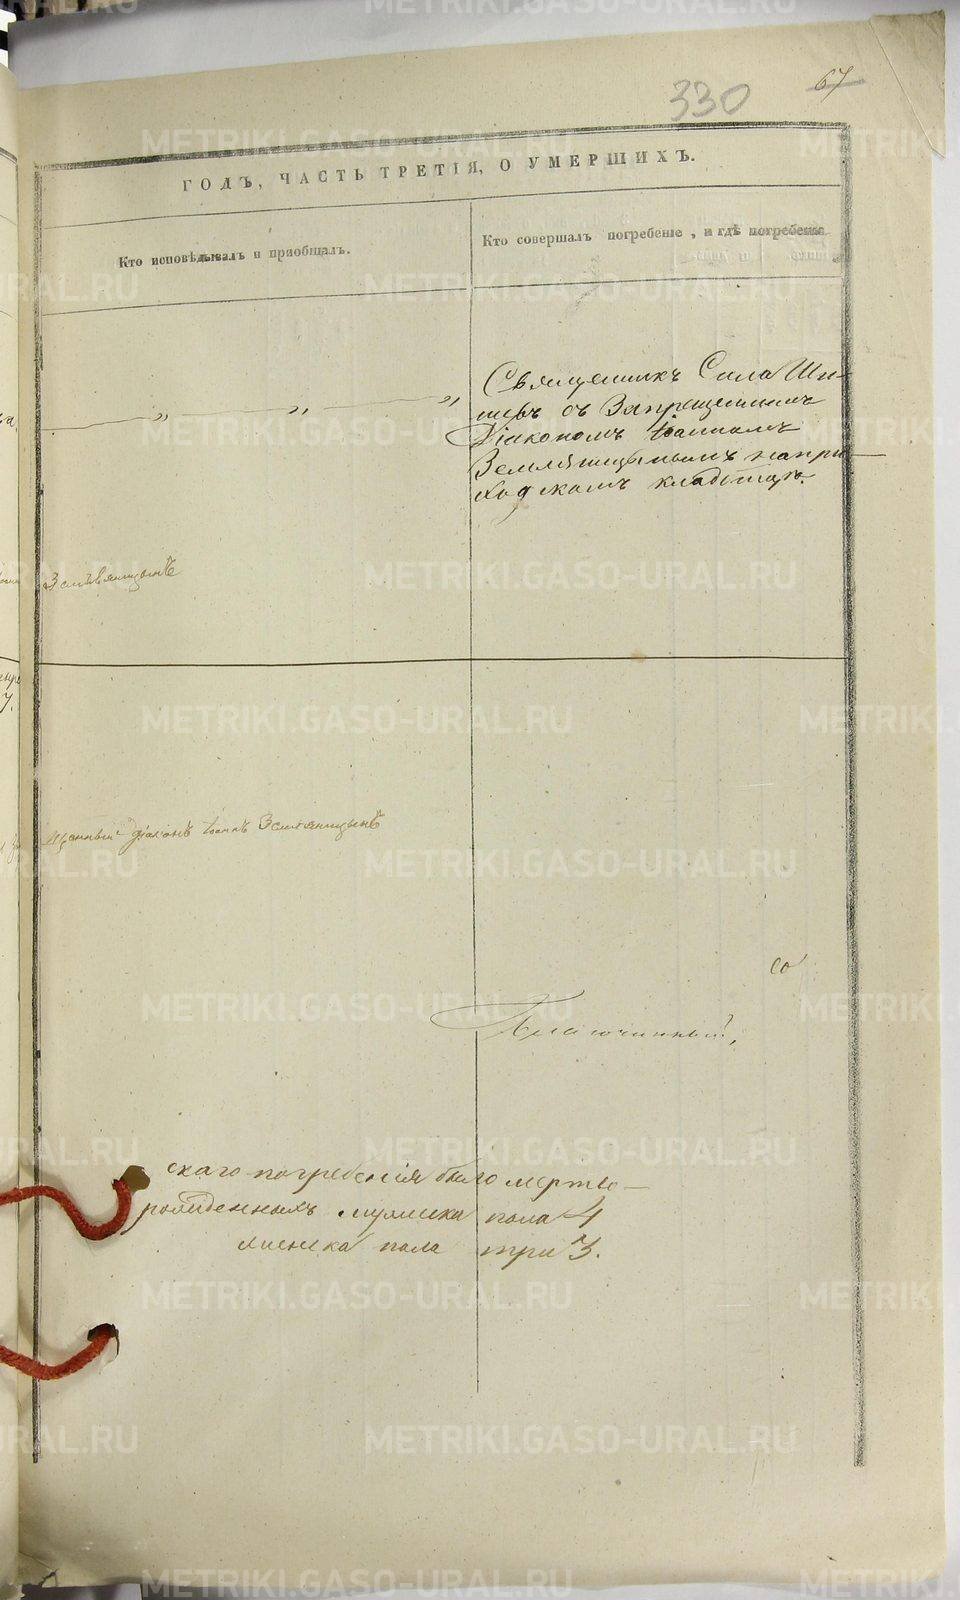 330
67
ГОДЪ, ЧАСТЬ ТРЕТІЯ, О УМЕРШИХЪ.
Кто исповѣдывалъ и приобщалъ.
Кто совершалъ погребеніе, и гдѣ погребены
Священникъ Сила
съ Запрещеннымъ
Діакономъ Іоанномъ
Земляницынымъ на при-
ходскомъ кладбищѣ.
Земляницынъ
діаконъ Іоаннъ Земляницынъ
со
Благочинный,
скаго погребенія было мертво-
рожденныхъ мужска пола 4
женска пола три 3.
METRIKI.GASO-URAL.RU